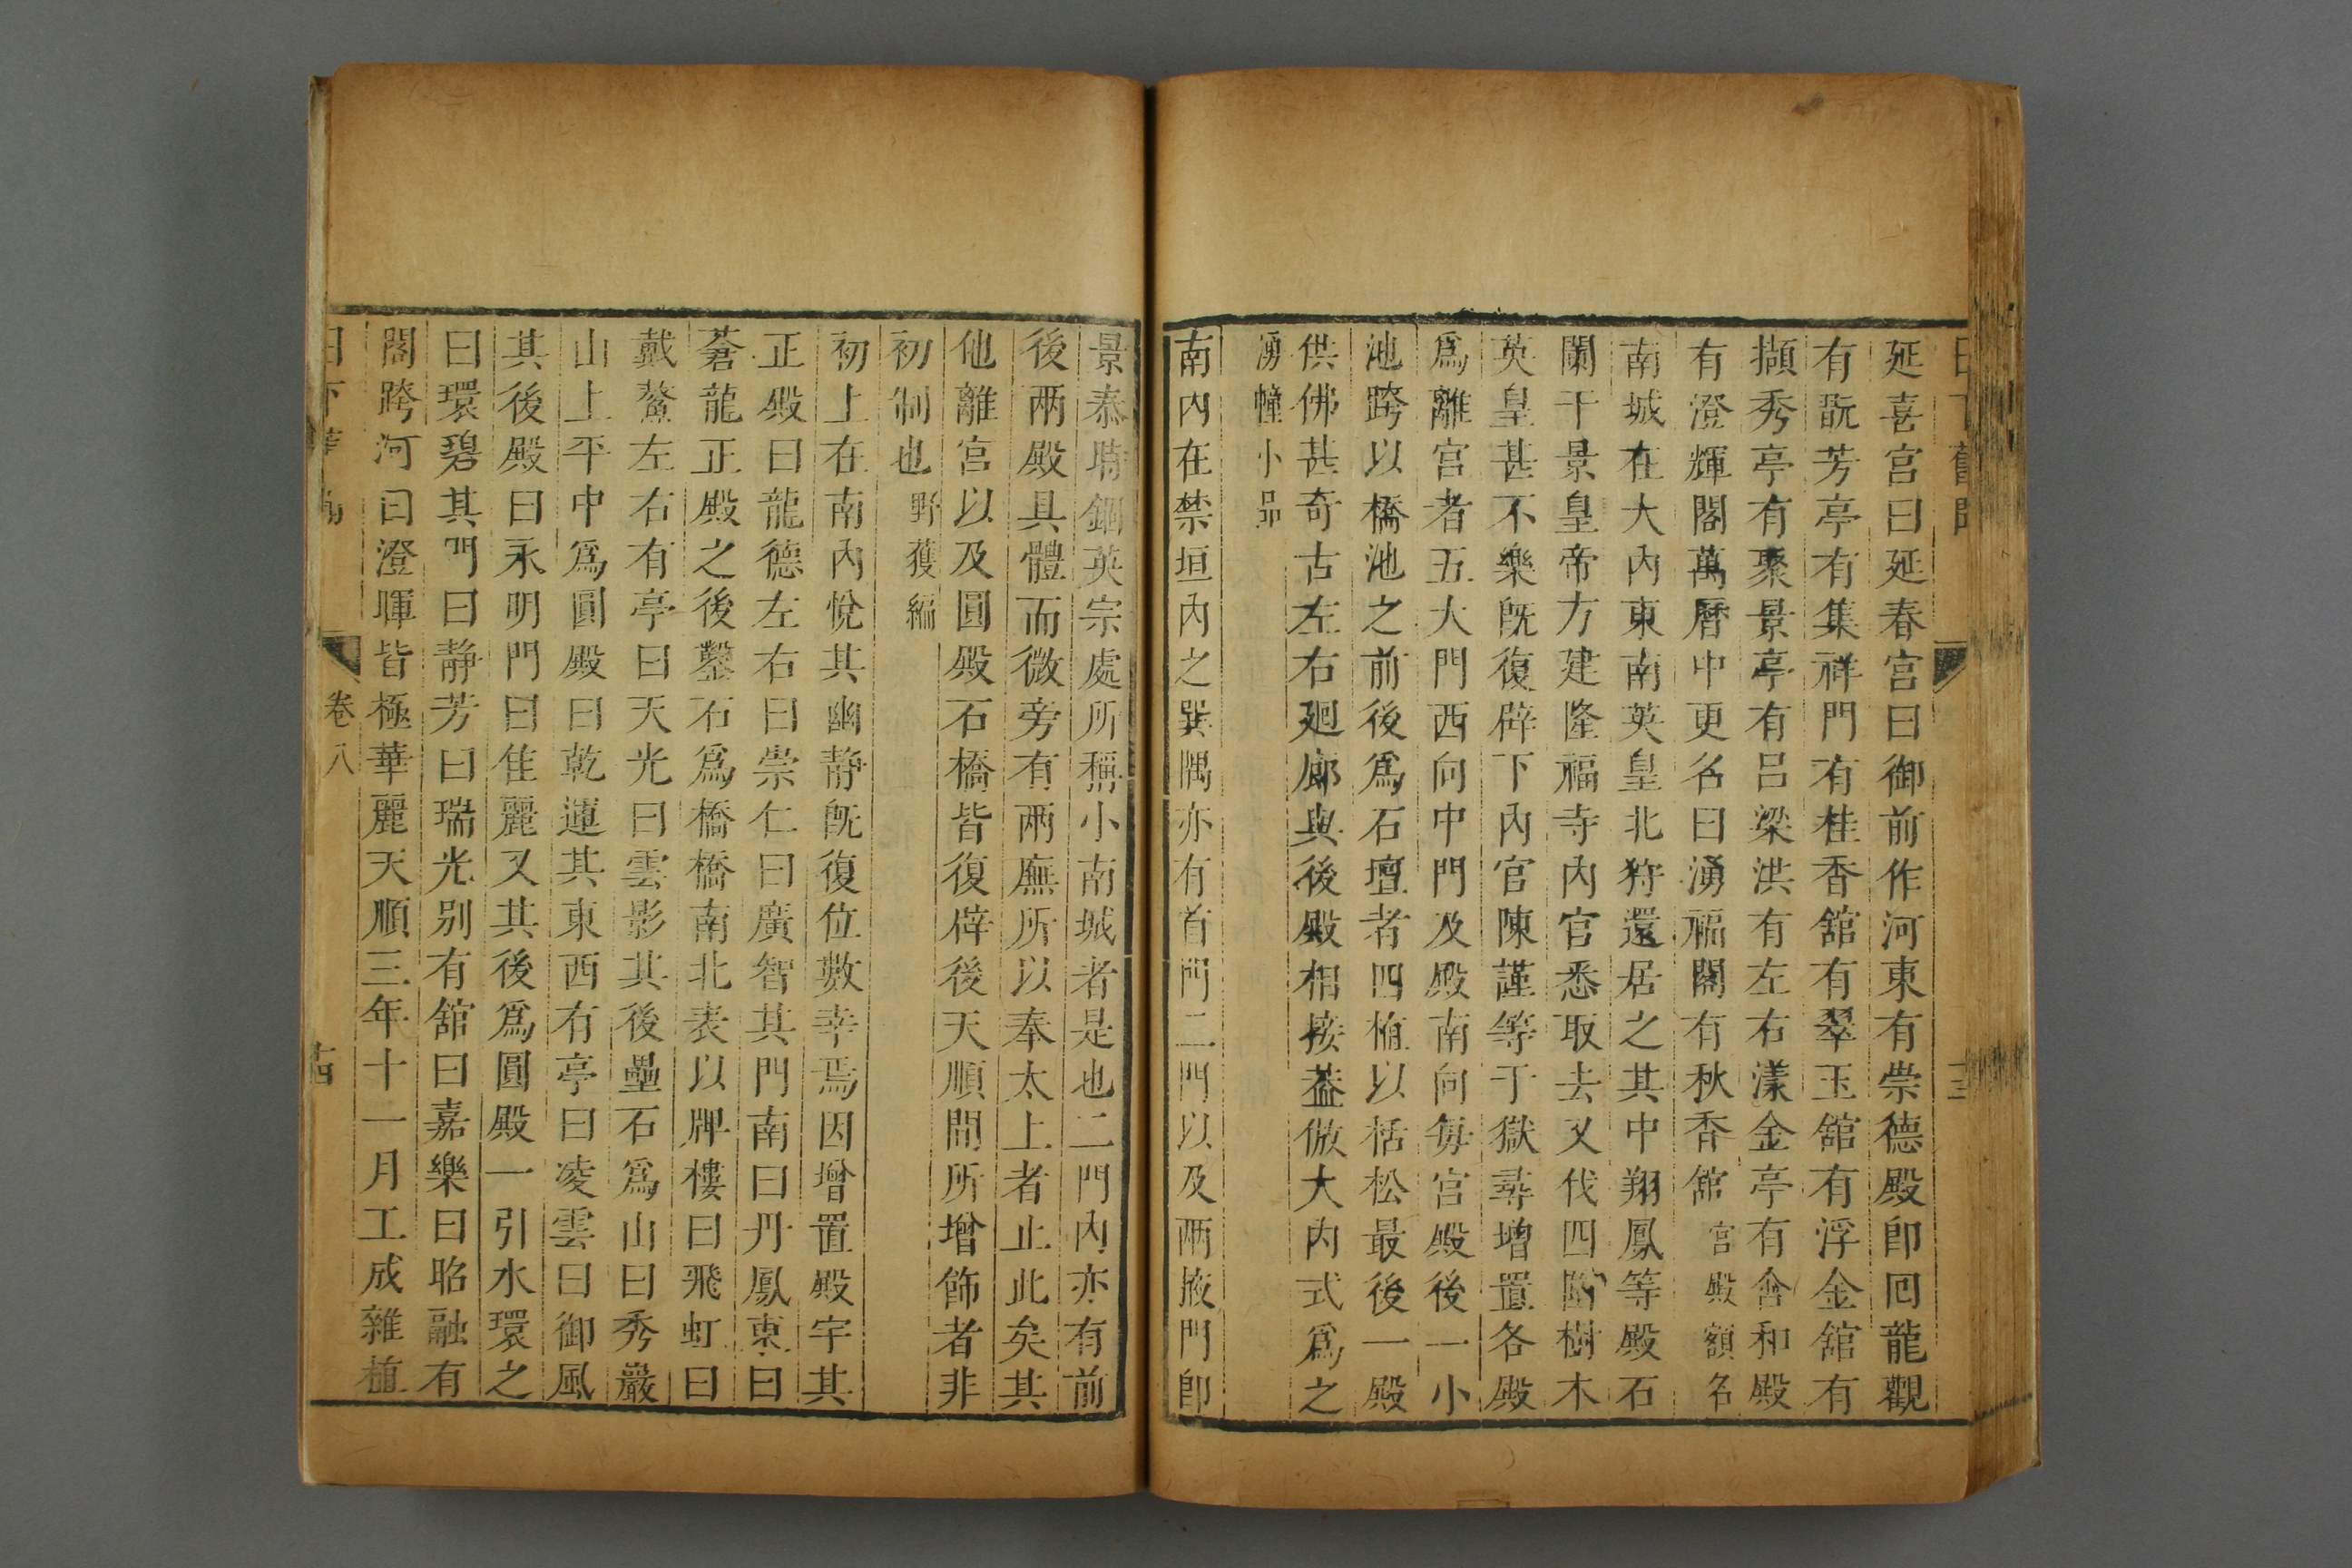 延喜宮曰延春宮曰御前作河東有崇德殿卽回龍觀
有翫芳亭有集祥門有桂香舘有翠玉舘有浮金舘有
擷秀亭有聚景亭有呂梁洪有左右漾金亭有含和殿
有澄輝閣萬曆中更名曰湧福閣有秋香舘宮殿額名
南城在大內東南英皇北狩還居之其中翔鳳等殿石
闌干景皇帝方建隆福寺內官悉取去又伐四圍樹木
英皇甚不樂旣復辟下內官陳謹等于獄尋增置各殿
爲離宮者五大門西向中門及殿南向每宮殿後一小
池跨以橋池之前後爲石壇者四植以栝松最後一殿
供佛甚奇古左右廻廊與後殿相接葢倣大內式爲之
湧幢小品
南內在禁垣內之巽隅亦有首門二門以及兩掖門卽
景泰時錮英宗處所稱小南城者是也二門內亦有前
後兩殿具體而微旁有兩廡所以奉太上者止此矣其
他離宮以及圓殿石橋皆復辟後天順間所增飾者非
初制也野獲編
初上在南內悅其幽靜旣復位數幸焉因增置殿宇其
正殿曰龍德左右曰崇仁曰廣智其門南曰丹鳳東曰
蒼龍正殿之後鑿石爲橋橋南北表以牌樓曰飛虹曰
戴鰲左右有亭曰天光曰雲影其後壘石爲山曰秀巖
山上平中爲圓殿曰乾運其東西有亭曰凌雲曰御風
其後殿曰永明門曰佳麗又其後爲圓殿一引水環之
曰環碧其門曰靜芳曰瑞光別有舘曰嘉樂曰昭融有
閣跨河曰澄暉皆極華麗天順三年十一月工成雜植
卷八